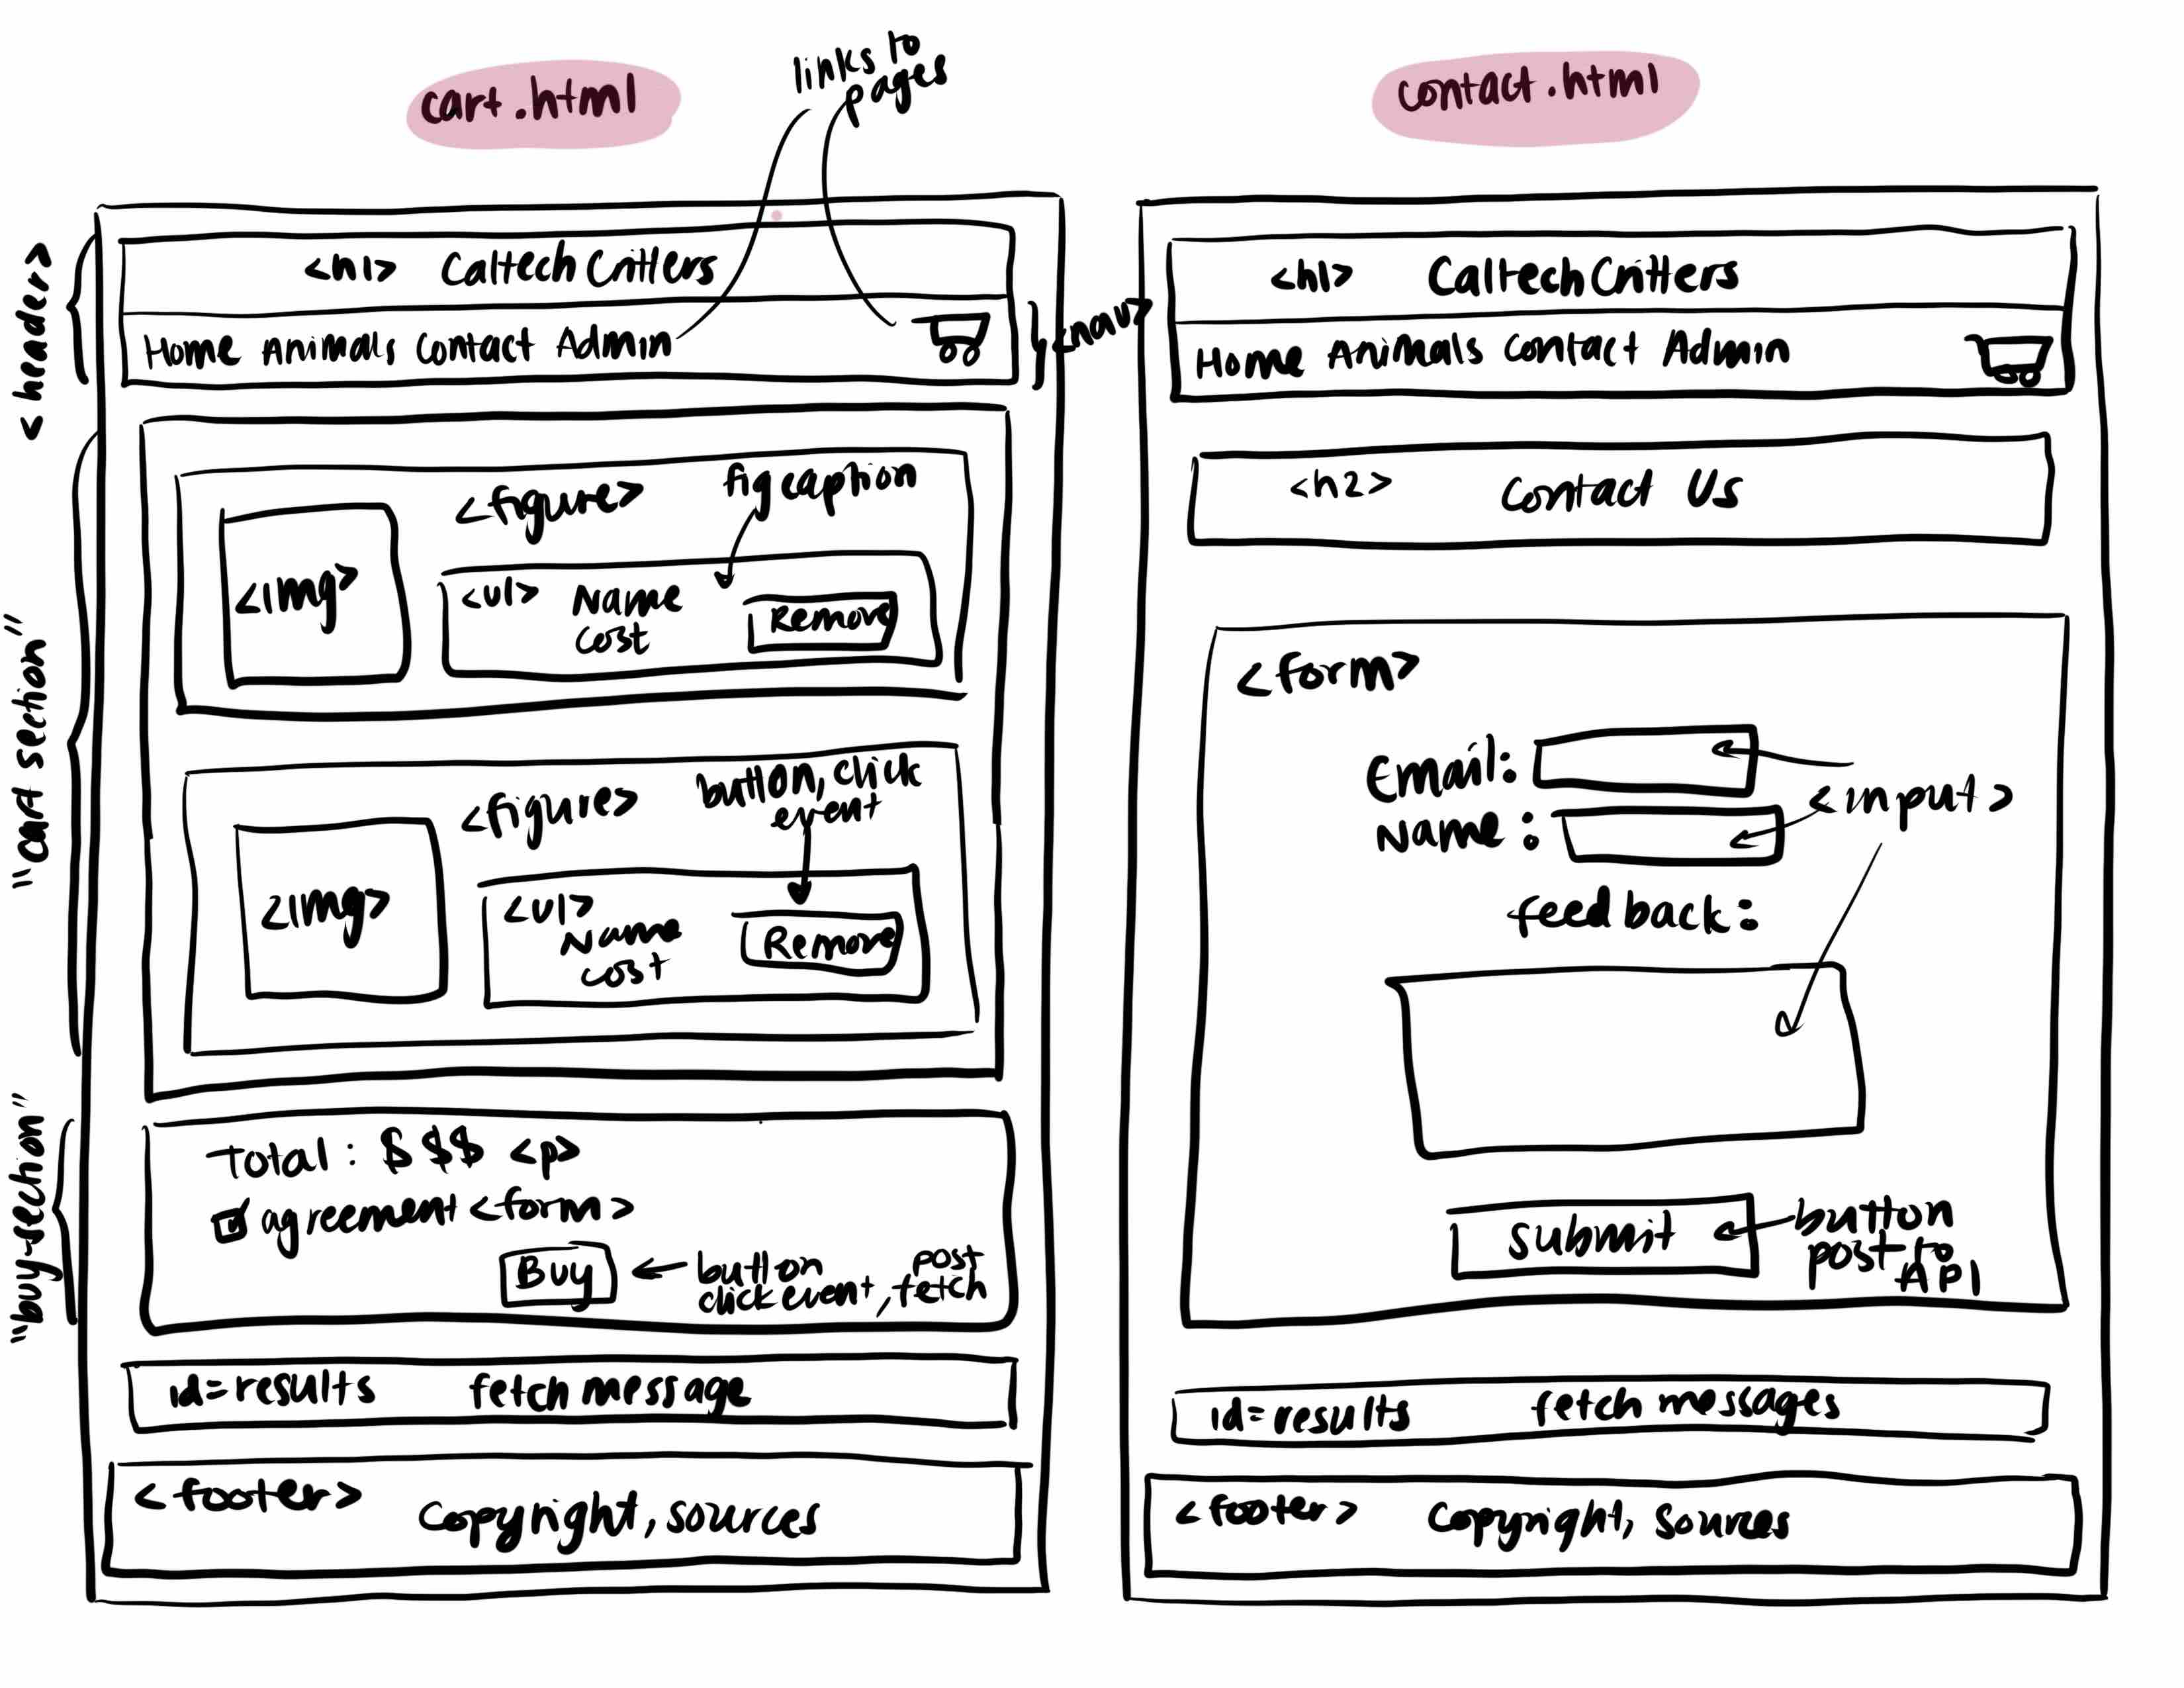 cart.html
links to
pages
<header>
<h1> Caltech Critters
Home Animals Contact Admin
<nav>
"cart section"
<figure>
figcaption
<img>
<ul> Name
cost
Remove
<figure>
button, click
event
<img>
<ul>
Name
cost
Remove
"buy-section"
Total: $$$ <p>
agreement <form>
Buy
button
click event, post
fetch
id=results fetch message
<footer> Copyright, sources
contact.html
<h1> Caltech Critters
Home Animals Contact Admin
<h2> Contact Us
<form>
Email:
Name:
<input>
feedback:
submit
button
post to
API
id=results fetch messages
<footer> Copyright, sources